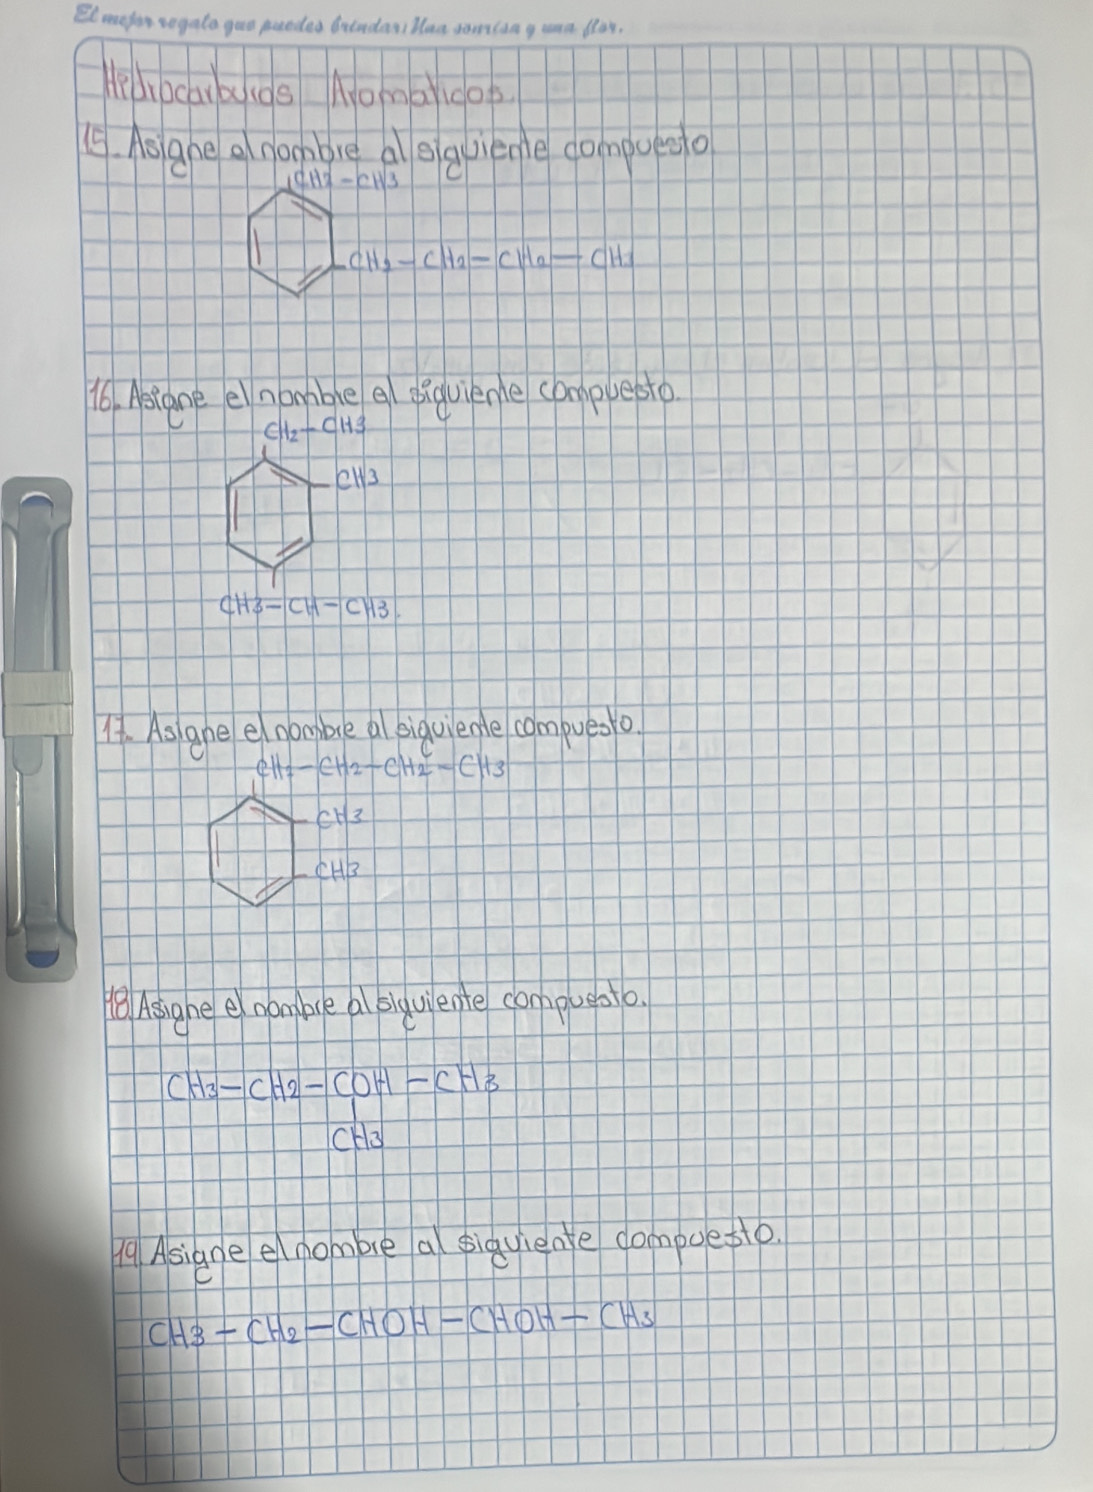 El mejor regalo que puedes brindar: Una sonrisa y una flor.
Hidrocarburos Aromaticos.
15. Asigne el nombre al siguiente compuesto
CH2-CH3
CH2-CH2-CH2-CH3
16. Asigne el nombre al siguiente compuesto.
CH2-CH3
CH3
CH3-CH-CH3.
17. Asigne el nombre al siguiente compuesto.
CH2-CH2-CH2-CH3
CH3
CH3
18. Asigne el nombre al siguiente compuesto.
CH3-CH2-COH-CH3
CH3
19. Asigne el nombre al siguiente compuesto.
CH3-CH2-CHOH-CHOH-CH3